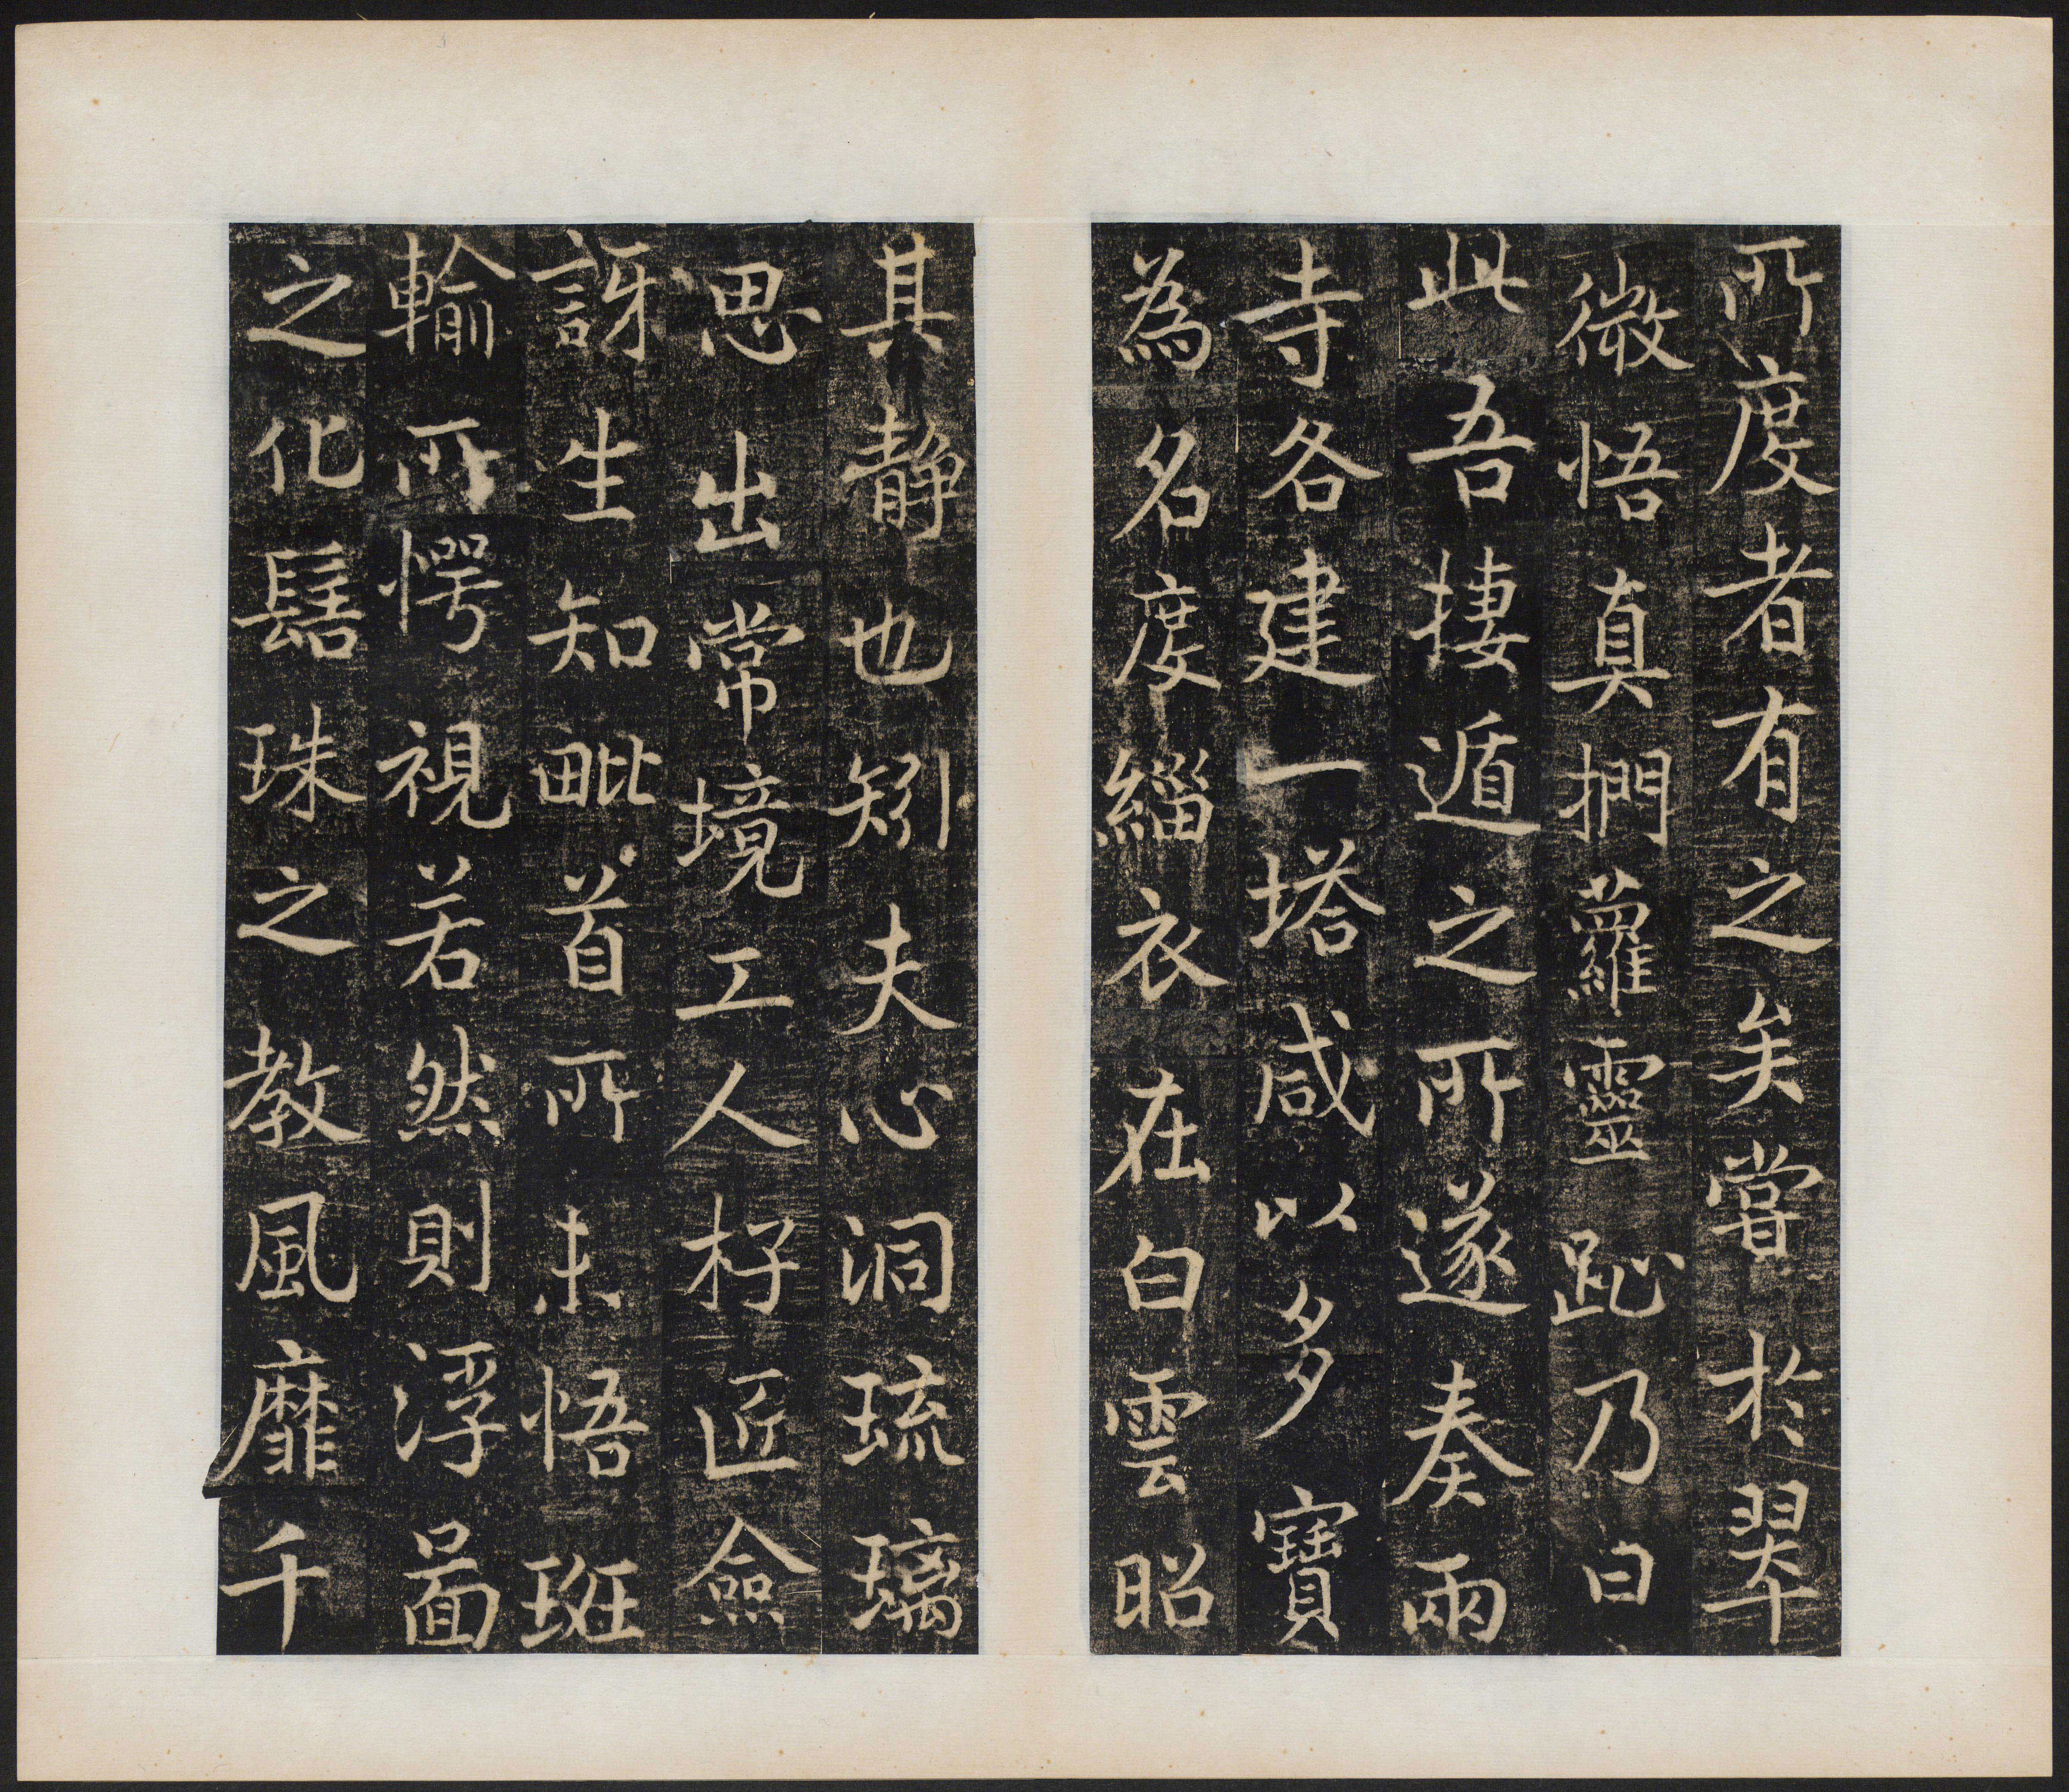 所度者有之矣嘗於翠
微悟真捫蘿靈趾乃曰
此吾捿遁之所遂奏兩
寺各建一塔咸以多寶
為名度緇衣在白雲昭
其靜也矧夫心洞琉璃
思出常境工人杍匠僉
訝生知毗首所未悟班
輸所愕視若然則浮啚
之化髻珠之教風靡千